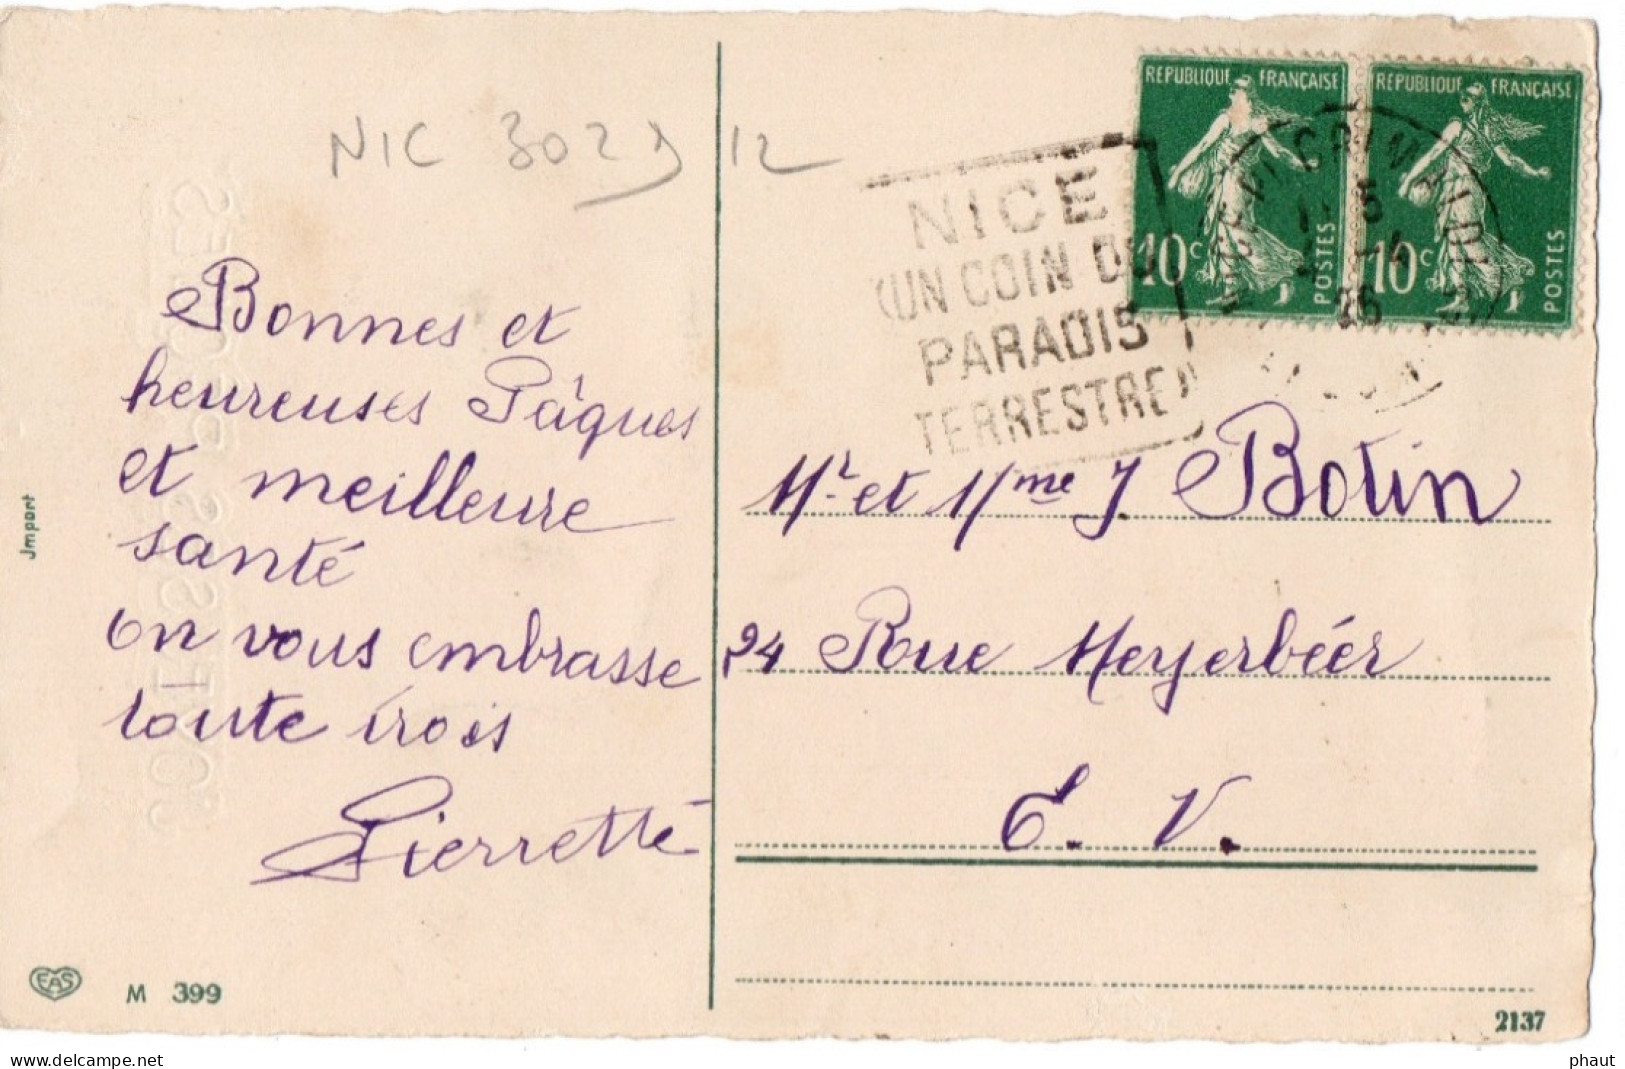 NIC 3029 12
RÉPUBLIQUE FRANÇAISE
10c POSTES
RÉPUBLIQUE FRANÇAISE
10c POSTES
NICE
"UN COIN DU
PARADIS
TERRESTRE"
Bonnes et
heureuses Pâques
et meilleure
santé
on vous embrasse
toute trois
Pierrette
Mr et Mme J. Botin
24 Rue Meyerbéer
E. V.
Import
EAS
M 399
2137
phaut
https://www.delcampe.net